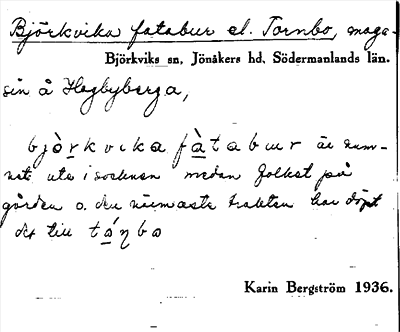 Björkvika fatabur el. Tornbo, maga-
Björkviks sn, Jönåkers hd, Södermanlands län.
sin å Hagbyberga,
bjò̱rkvika fà̱tabur är nam-
net ute i socknen medan folket på
gården o. den närmaste trakten har döpt
det till tá̱ɳbo
Karin Bergström 1936.